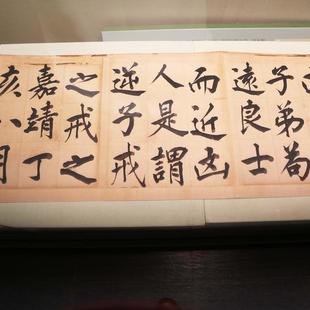 子弟苟
遠良士
而近凶
人是謂
逆子戒
之戒之
嘉靖丁
亥八月